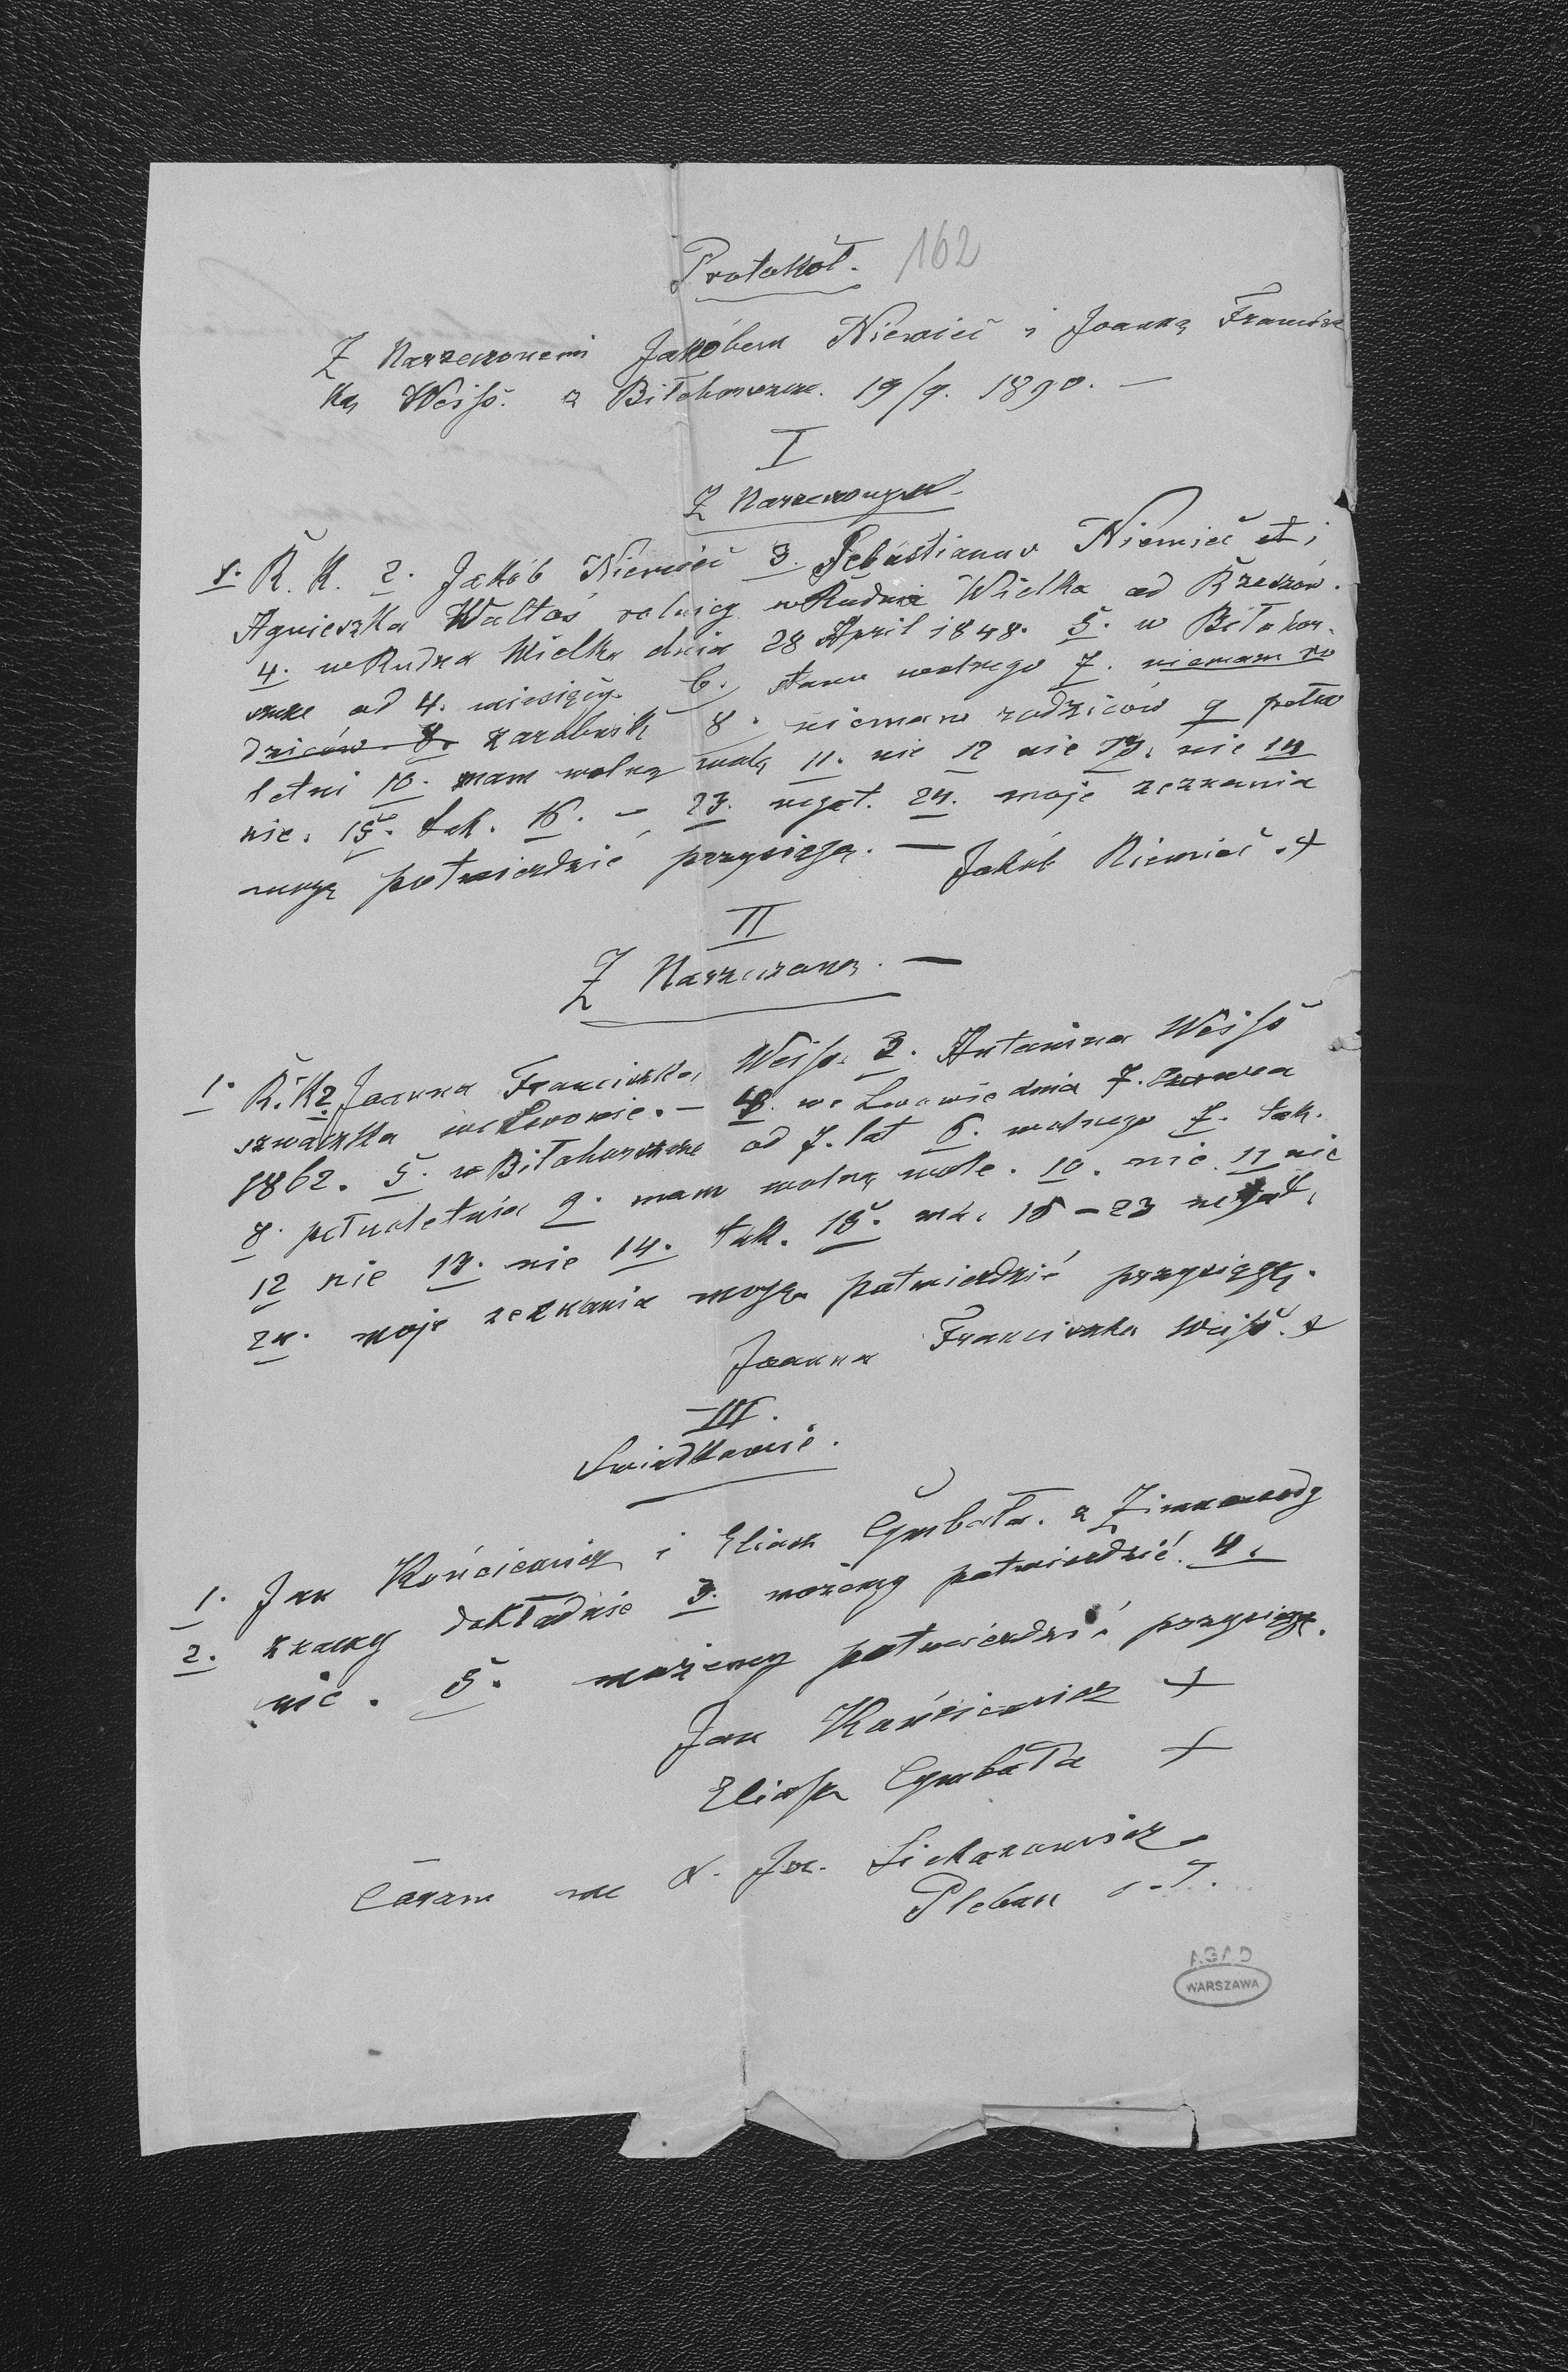 Protokół. 162
Z Narzeczonemi Jakóbem Niemieć i Joanną Francisz
ką Weiß. z Biłohorszcze. 19/9. 1890. —
I
Z Narzeczonym
1. R. K. 2. Jakób Niemieć 3. Sebastianus Niemieć et i
Agnieszka Waltoś rolnicy w Rudna Wielka ad Rzeszów.
4. w Rudna Wielka dnia 28 April 1848. 5. w Biłohor-
szcze od 4. miesięcy. 6. stanu wolnego 7. niemam ro
dziców 8. zarobnik 8. niemam rodziców 9 pełno
letni 10. mam wolną wolę 11. nie 12 nie 13. nie 14
nie. 15. tak. 16. – 23. negat. 24. moje zeznania
mogę potwierdzić przysięgą. — Jakób Niemieć . +
II
Z Narzeczoną. —
1. R. K 2. Joanna Franciszka Weiß. 3. Antonina Weiß
szwaczka we Lwowie. – 4. we Lwowie dnia 7. czerwca
1862. 5. w Biłohorszcze od 7. lat 6. wolnego 7. tak.
8. pełnoletnia 9. mam wolną wole. 10. nie 11 nie
12 nie 13. nie 14. tak. 15. nie. 16 – 23 negat.
24. moje zeznania mogę potwierdzić przysięgą.
Joanna Franciszka Weiß. +
III.
Świadkowie.
1. Jan Kończewicz i Eliasz Cymbała. z Zimnowody
2. znamy dokładnie 3. możemy potwierdzić. 4.
nie. 5. możemy potwierdzić przysięgę.
Jan Kończewicz +
Eliasz Cymbała +
Coram me X. Jos. Lickonowicz
Pleban
AGAD
WARSZAWA